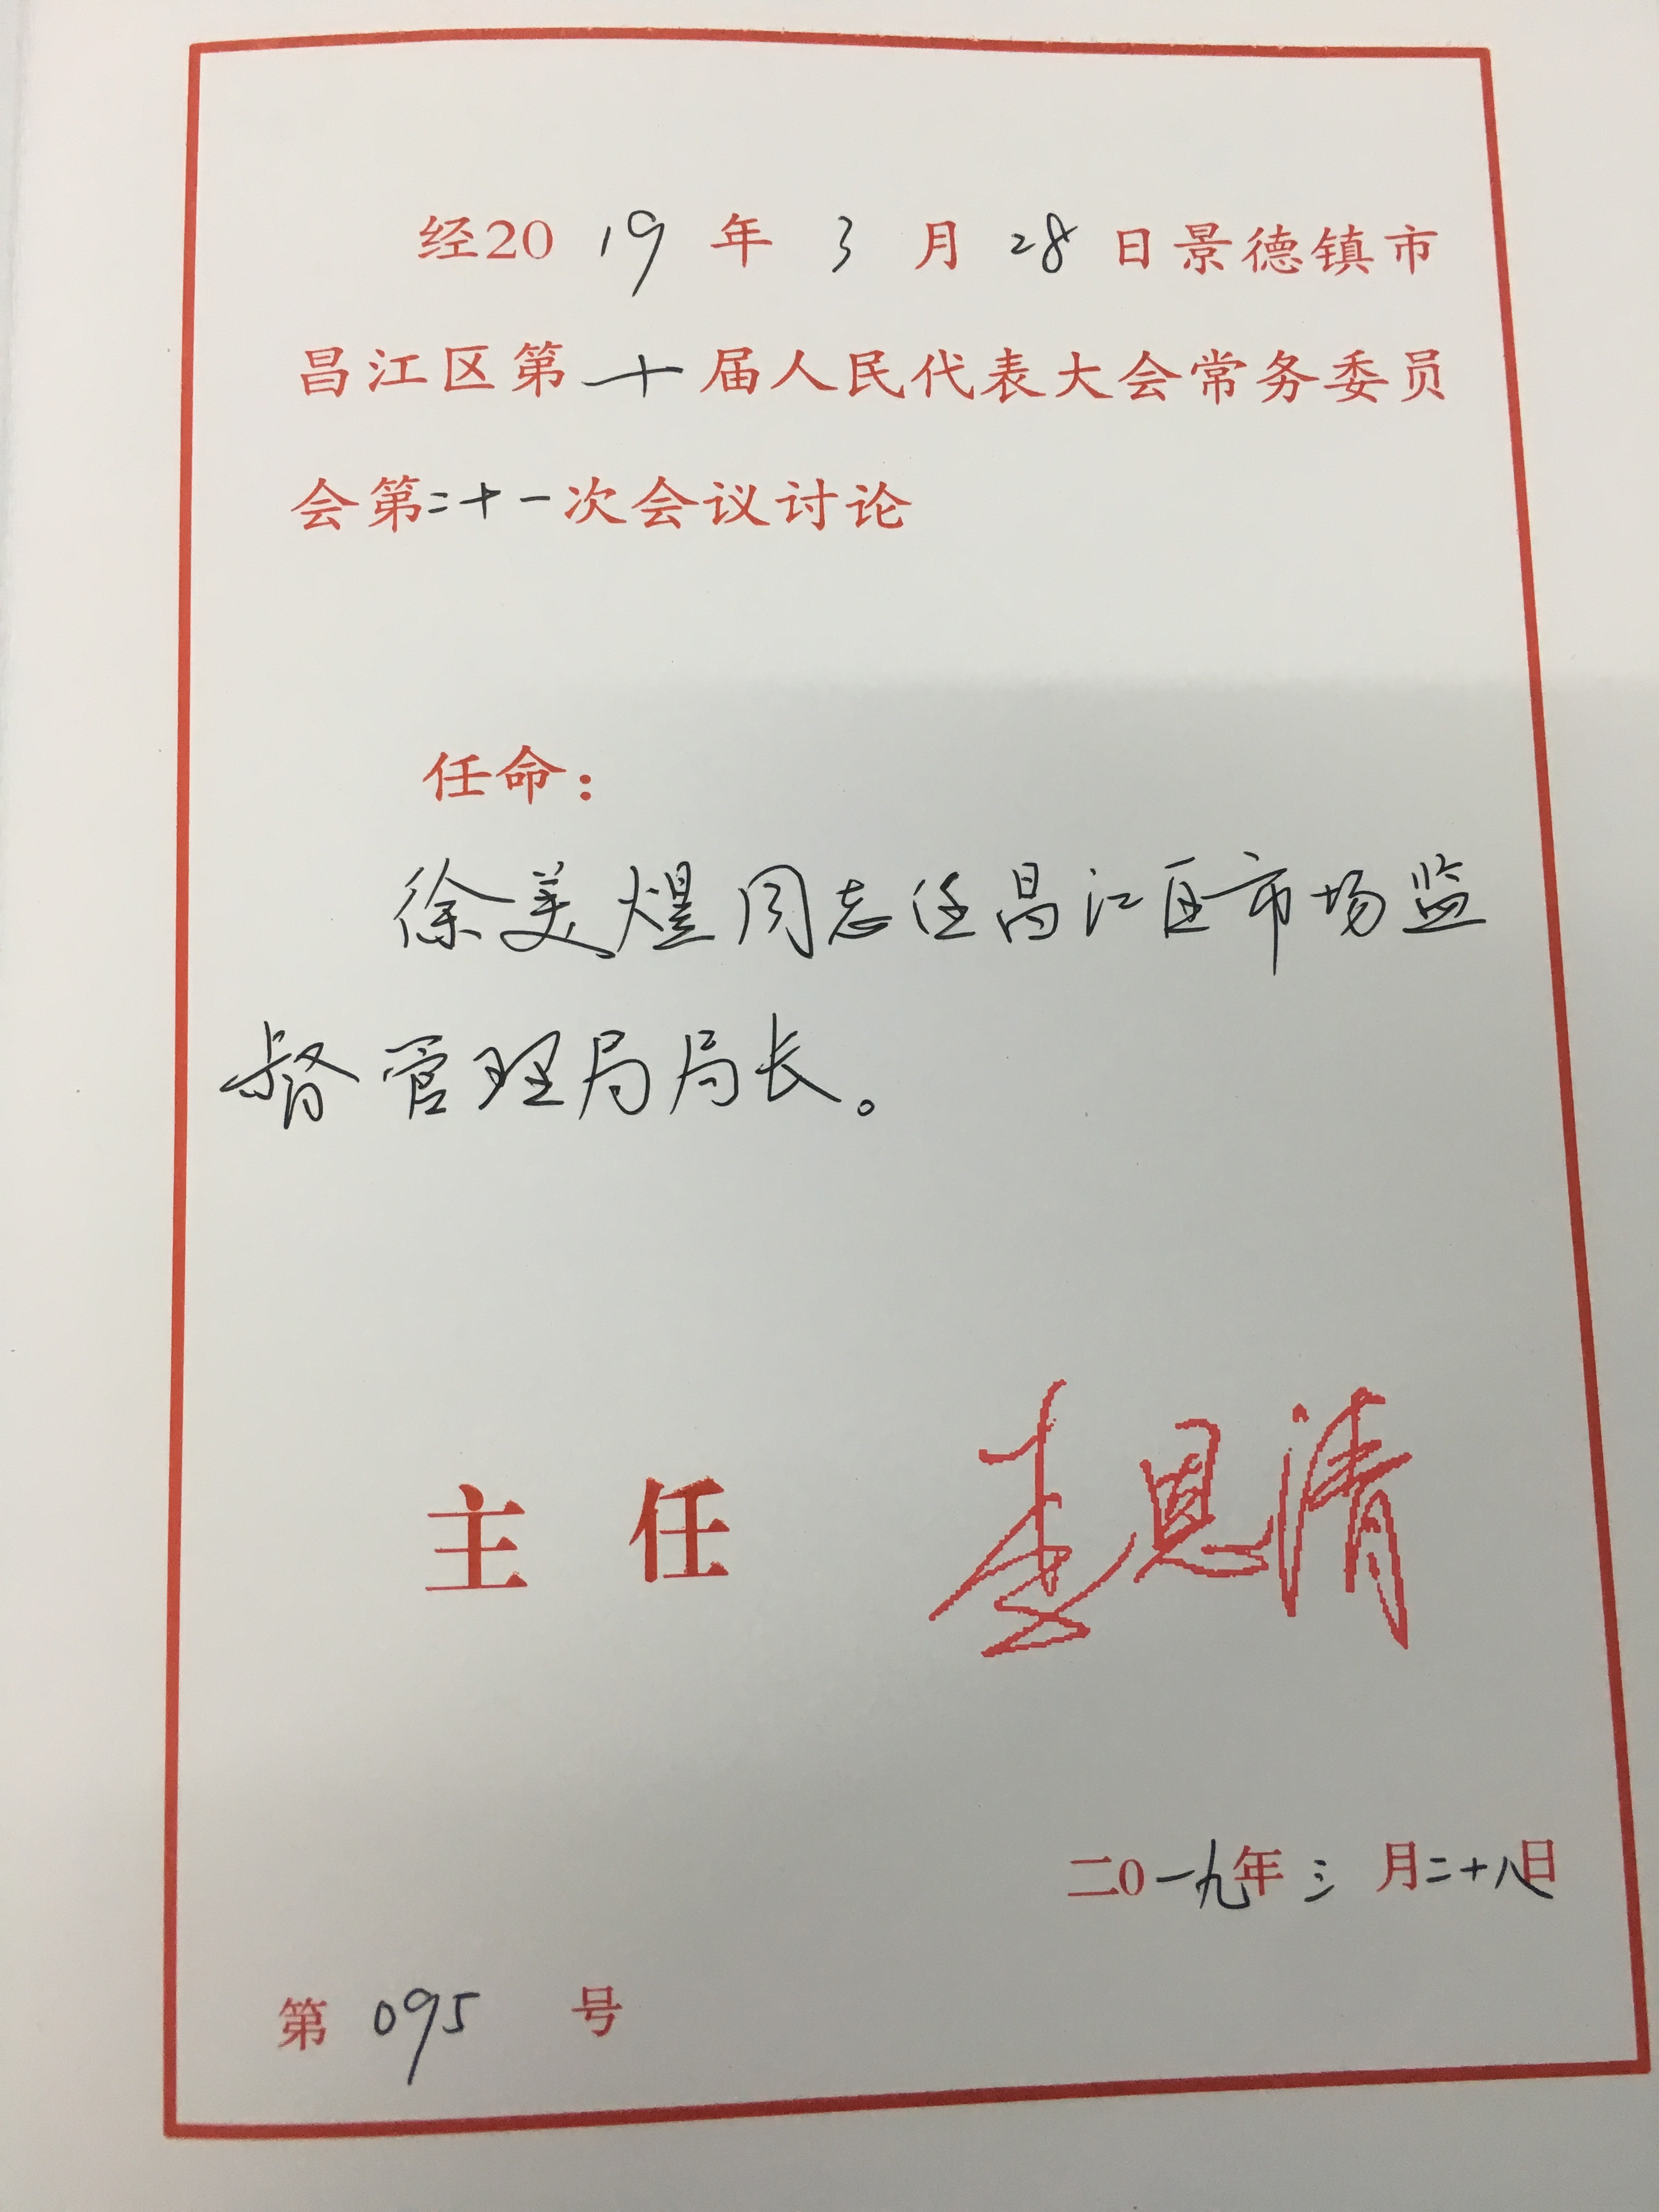 经2019年3月28日景德镇市
昌江区第十届人民代表大会常务委员
会第二十一次会议讨论
任命：
徐美煜同志任昌江区市场监
督管理局局长。
主 任 李恩清
二0一九年三月二十八日
第095号